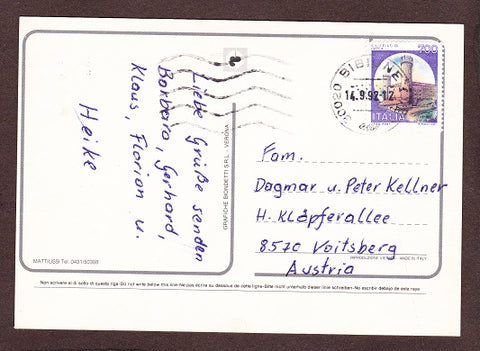 Liebe Grüße senden
Barbara, Gerhard,
Klaus, Florian u.
Heike
GRAFICHE BIONDETTI S.R.L. - VERONA
700
ITALIA
BIBIONE
14.9.92-12
Fam.
Dagmar u. Peter Kellner
H. Klöpferallee
8570 Voitsberg
Austria
MATTIUSSI Tel. 0431/50388
RIPRODUZIONE VIETATA MADE IN ITALY
Non scrivere al di sotto di questa riga-Do not write below this line-Ne pas écrire au dessous de cette ligne-Bitte nicht unterhalb dieser linie schreiben-No escribir debajo de esta raya